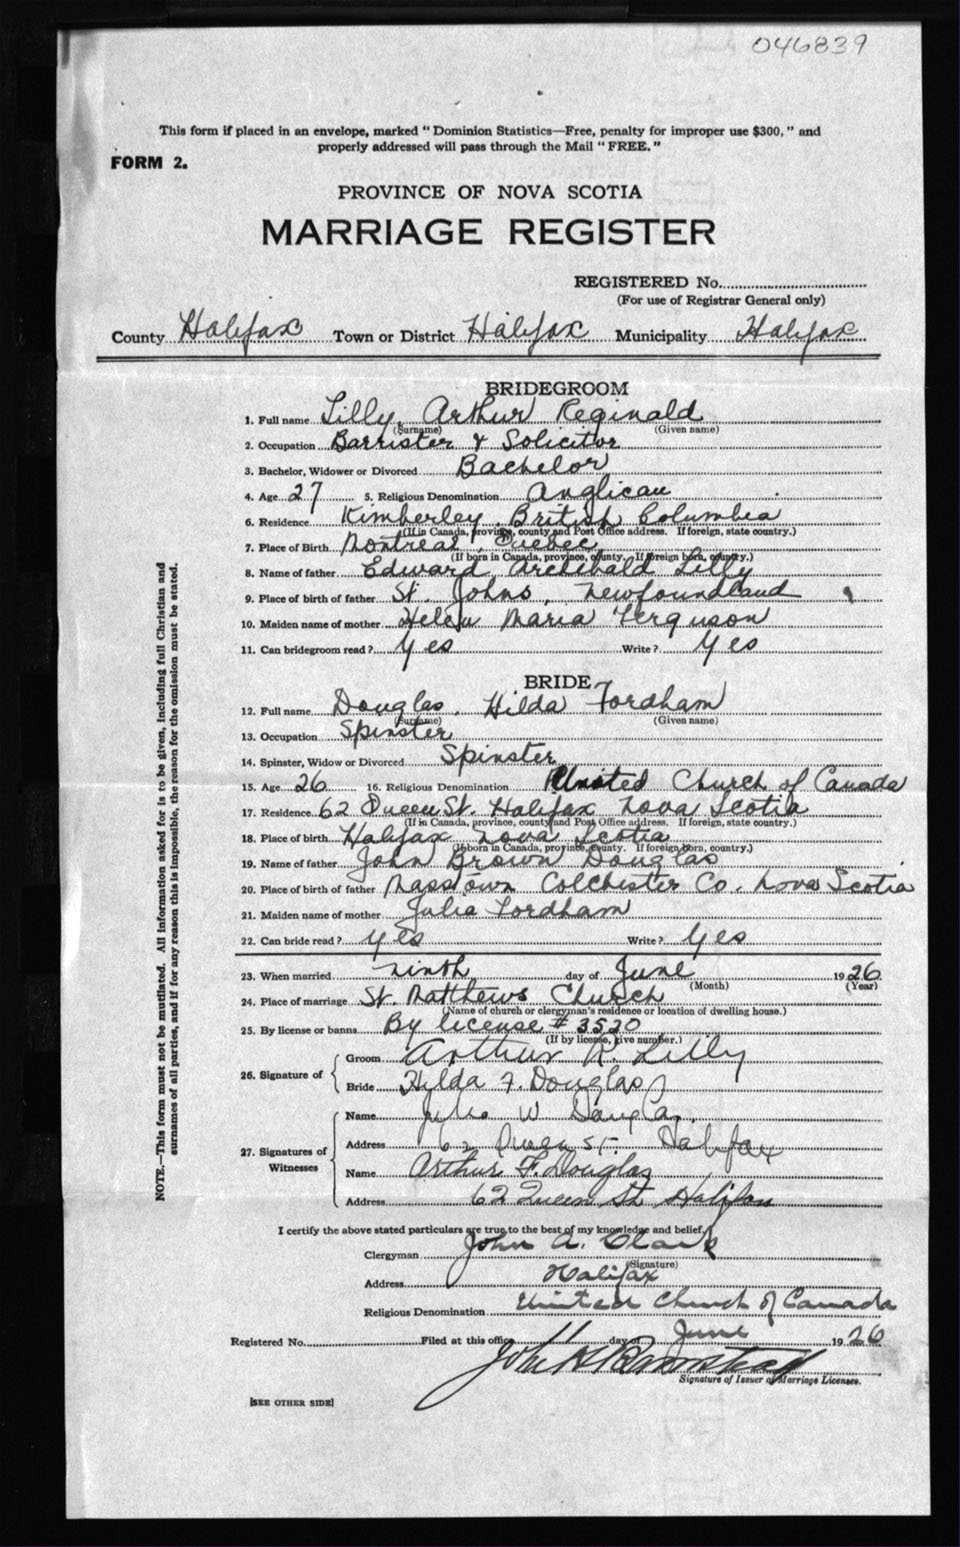 046839
This form if placed in an envelope, marked "Dominion Statistics—Free, penalty for improper use $300," and
properly addressed will pass through the Mail "FREE."
FORM 2.
PROVINCE OF NOVA SCOTIA
MARRIAGE REGISTER
REGISTERED No.
(For use of Registrar General only)
County Halifax Town or District Halifax Municipality Halifax
BRIDEGROOM
1. Full name Lilly, Arthur Reginald
(Surname) (Given name)
2. Occupation Barrister & Solicitor
3. Bachelor, Widower or Divorced Bachelor
4. Age 27 5. Religious Denomination Anglican
6. Residence Kimberley, British Columbia
(If in Canada, province, county and Post Office address. If foreign, state country.)
7. Place of Birth Montreal, Quebec
(If born in Canada, province, county. If foreign born, country.)
8. Name of father Edward Archibald Lilly
9. Place of birth of father St. Johns, Newfoundland
10. Maiden name of mother Helen Maria Ferguson
11. Can bridegroom read? Yes Write? Yes
BRIDE
12. Full name Douglas, Hilda Fordham
(Surname) (Given name)
13. Occupation Spinster
14. Spinster, Widow or Divorced Spinster
15. Age 26 16. Religious Denomination United Church of Canada
17. Residence 62 Queen St. Halifax Nova Scotia
(If in Canada, province, county and Post Office address. If foreign, state country.)
18. Place of birth Halifax Nova Scotia
(If born in Canada, province, county. If foreign born, country.)
19. Name of father John Brown Douglas
20. Place of birth of father Masstown Colchester Co. Nova Scotia
21. Maiden name of mother Julia Fordham
22. Can bride read? Yes Write? Yes
23. When married ninth day of June 1926
(Month) (Year)
24. Place of marriage St. Matthews Church
(Name of church or clergyman's residence or location of dwelling house.)
25. By license or banns By license # 3520
(If by license, give number.)
26. Signature of Groom Arthur R. Lilly
Bride Hilda F. Douglas
27. Signatures of Witnesses Name Julia W Douglas
Address 62 Queen St. Halifax
Name Arthur F. Douglas
Address 62 Queen St. Halifax
I certify the above stated particulars are true to the best of my knowledge and belief.
Clergyman John A. Clark
(Signature)
Address Halifax
Religious Denomination United Church of Canada
Registered No. Filed at this office 11 day of June 1926
John
Signature of Issuer of Marriage Licenses.
[SEE OTHER SIDE]
NOTE.—This form must not be mutilated. All information asked for is to be given, including full Christian and
surnames of all parties, and if for any reason this is impossible, the reason for the omission must be stated.